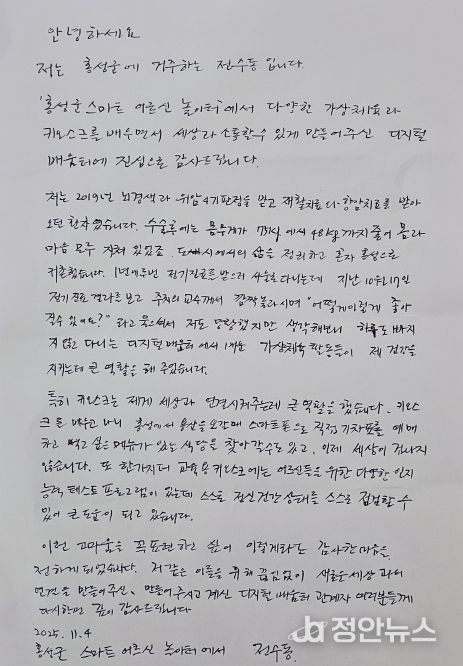 안녕하세요
저는 홍성군에 거주하는 전수동 입니다.
'홍성군 스마트 어르신 놀이터'에서 다양한 가상체육과
키오스크를 배우면서 세상과 소통할수 있게 만들어주신 디지털
배움터에 진심으로 감사드립니다.
저는 2019년 뇌경색과 위암4기판정을 받고 재활치료와 항암치료를 받아
오던 환자였습니다. 수술후에는 몸무게가 78kg에서 48kg까지 줄어 몸과
마음 모두 지쳐 있었죠. 도시에서의 삶을 정리하고 혼자 홍성으로
귀촌했습니다. 1년에 두번 정기진료를 받으러 서울로 다니는데 지난 10월17일
정기진료 결과를 보고 주치의 교수께서 깜짝 놀라시며 "어떻게이렇게 좋아
질수 있어요?" 라고 물으셔서 저도 놀랐지만 생각해보니 하루도 빠지
지 않고 다니는 디지털 배움터에서 배운 가상체육 활동들이 제 건강을
지키는데 큰 역할을 해 주었습니다.
특히 키오스크는 제게 세상과 연결시켜주는데 큰 역할을 했습니다. 키오스
크를 배우고 나니 홍성에서 용산을 오갈때 스마트폰으로 직접 기차표를 예매
하고 먹고 싶은 메뉴가 있는 식당을 찾아갈수도 있고, 이제 세상이 겁나지
않습니다. 또 한가지더 교육용 키오스크에는 어르신들을 위한 다양한 인지
능력 테스트 프로그램이 있는데 스스로 정신건강 상태를 스스로 점검할 수
있어 큰 도움이 되고 있습니다.
이런 고마움을 꼭 표현하고 싶어 이렇게라도 감사한 마음을
전하게 되었습니다. 저 같은 이들을 위해 끊임없이 새로운 세상과의
연결을 만들어주신, 만들어 주시고 계신 디지털 배움터 관계자 여러분들께
다시한번 깊이 감사드립니다
2025. 11. 4
홍성군 스마트 어르신 놀이터에서 전수동
정안뉴스